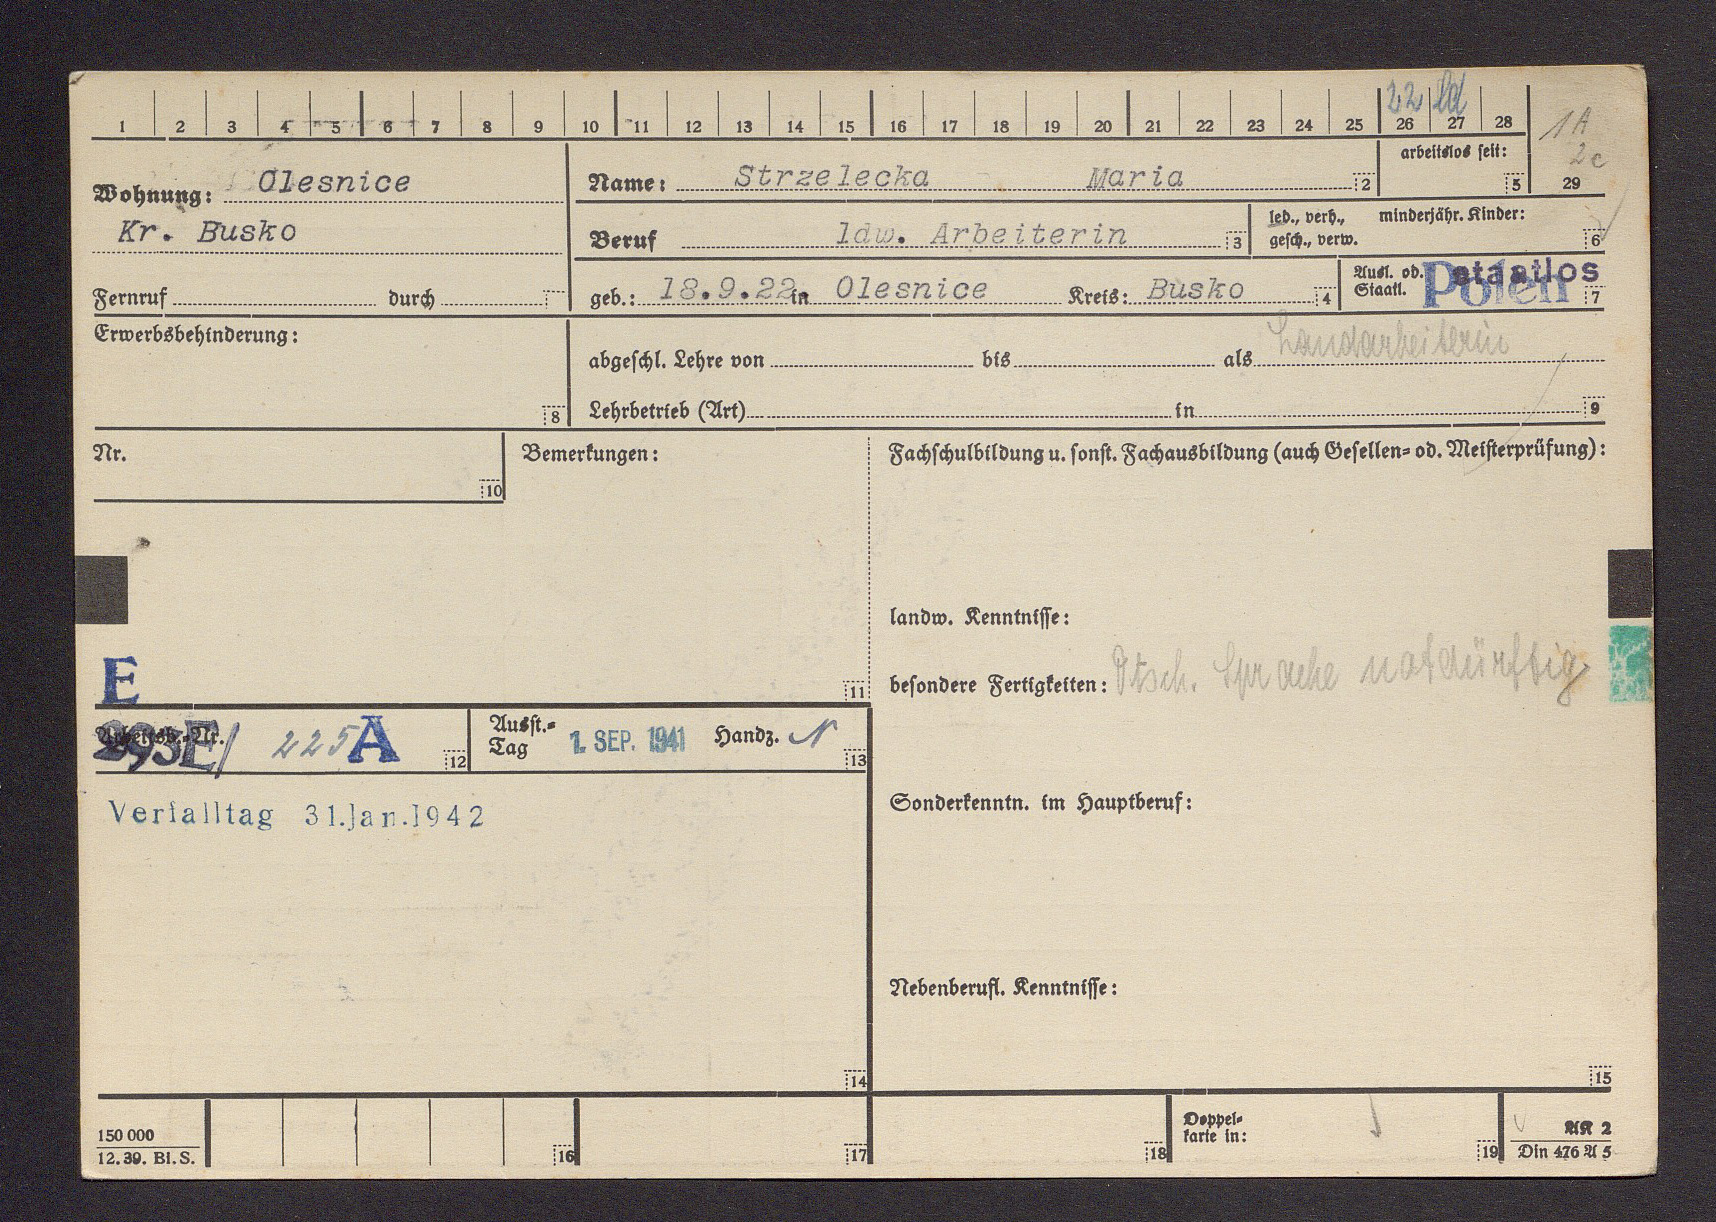 1 2 3 4 5 6 7 8 9 10 11 12 13 14 15 16 17 18 19 20 21 22 23 24 25 26 27 28
22
1A
2c
29
Wohnung: Olesnice
Kr. Busko
Fernruf durch
Name: Strzelecka Maria 2
arbeitslos seit: 5
Beruf ldw. Arbeiterin 3
led., verh., minderjähr. Kinder:
gesch., verw. 6
geb.: 18.9.22 in Olesnice Kreis: Busko 4
Ausl. od. staatlos
Staatl. Polen 7
Erwerbsbehinderung: 8
Landarbeiterin
abgeschl. Lehre von bis als
Lehrbetrieb (Art) in 9
Nr. 10
Bemerkungen:
Fachschulbildung u. sonst. Fachausbildung (auch Gesellen- od. Meisterprüfung):
landw. Kenntnisse:
besondere Fertigkeiten: Dtsch. Sprache notdürftig
E
11
Arbeitsb.-Nr. 293E/ 225 A 12
Ausst.-
Tag 1. SEP. 1941 Handz. 13
Verfalltag 31.Jan.1942
Sonderkenntn. im Hauptberuf:
Nebenberufl. Kenntnisse:
14
15
150 000
12.39. Bl.S.
16
17
18
Doppel-
karte in: 19
AK 2
Din 476 A 5